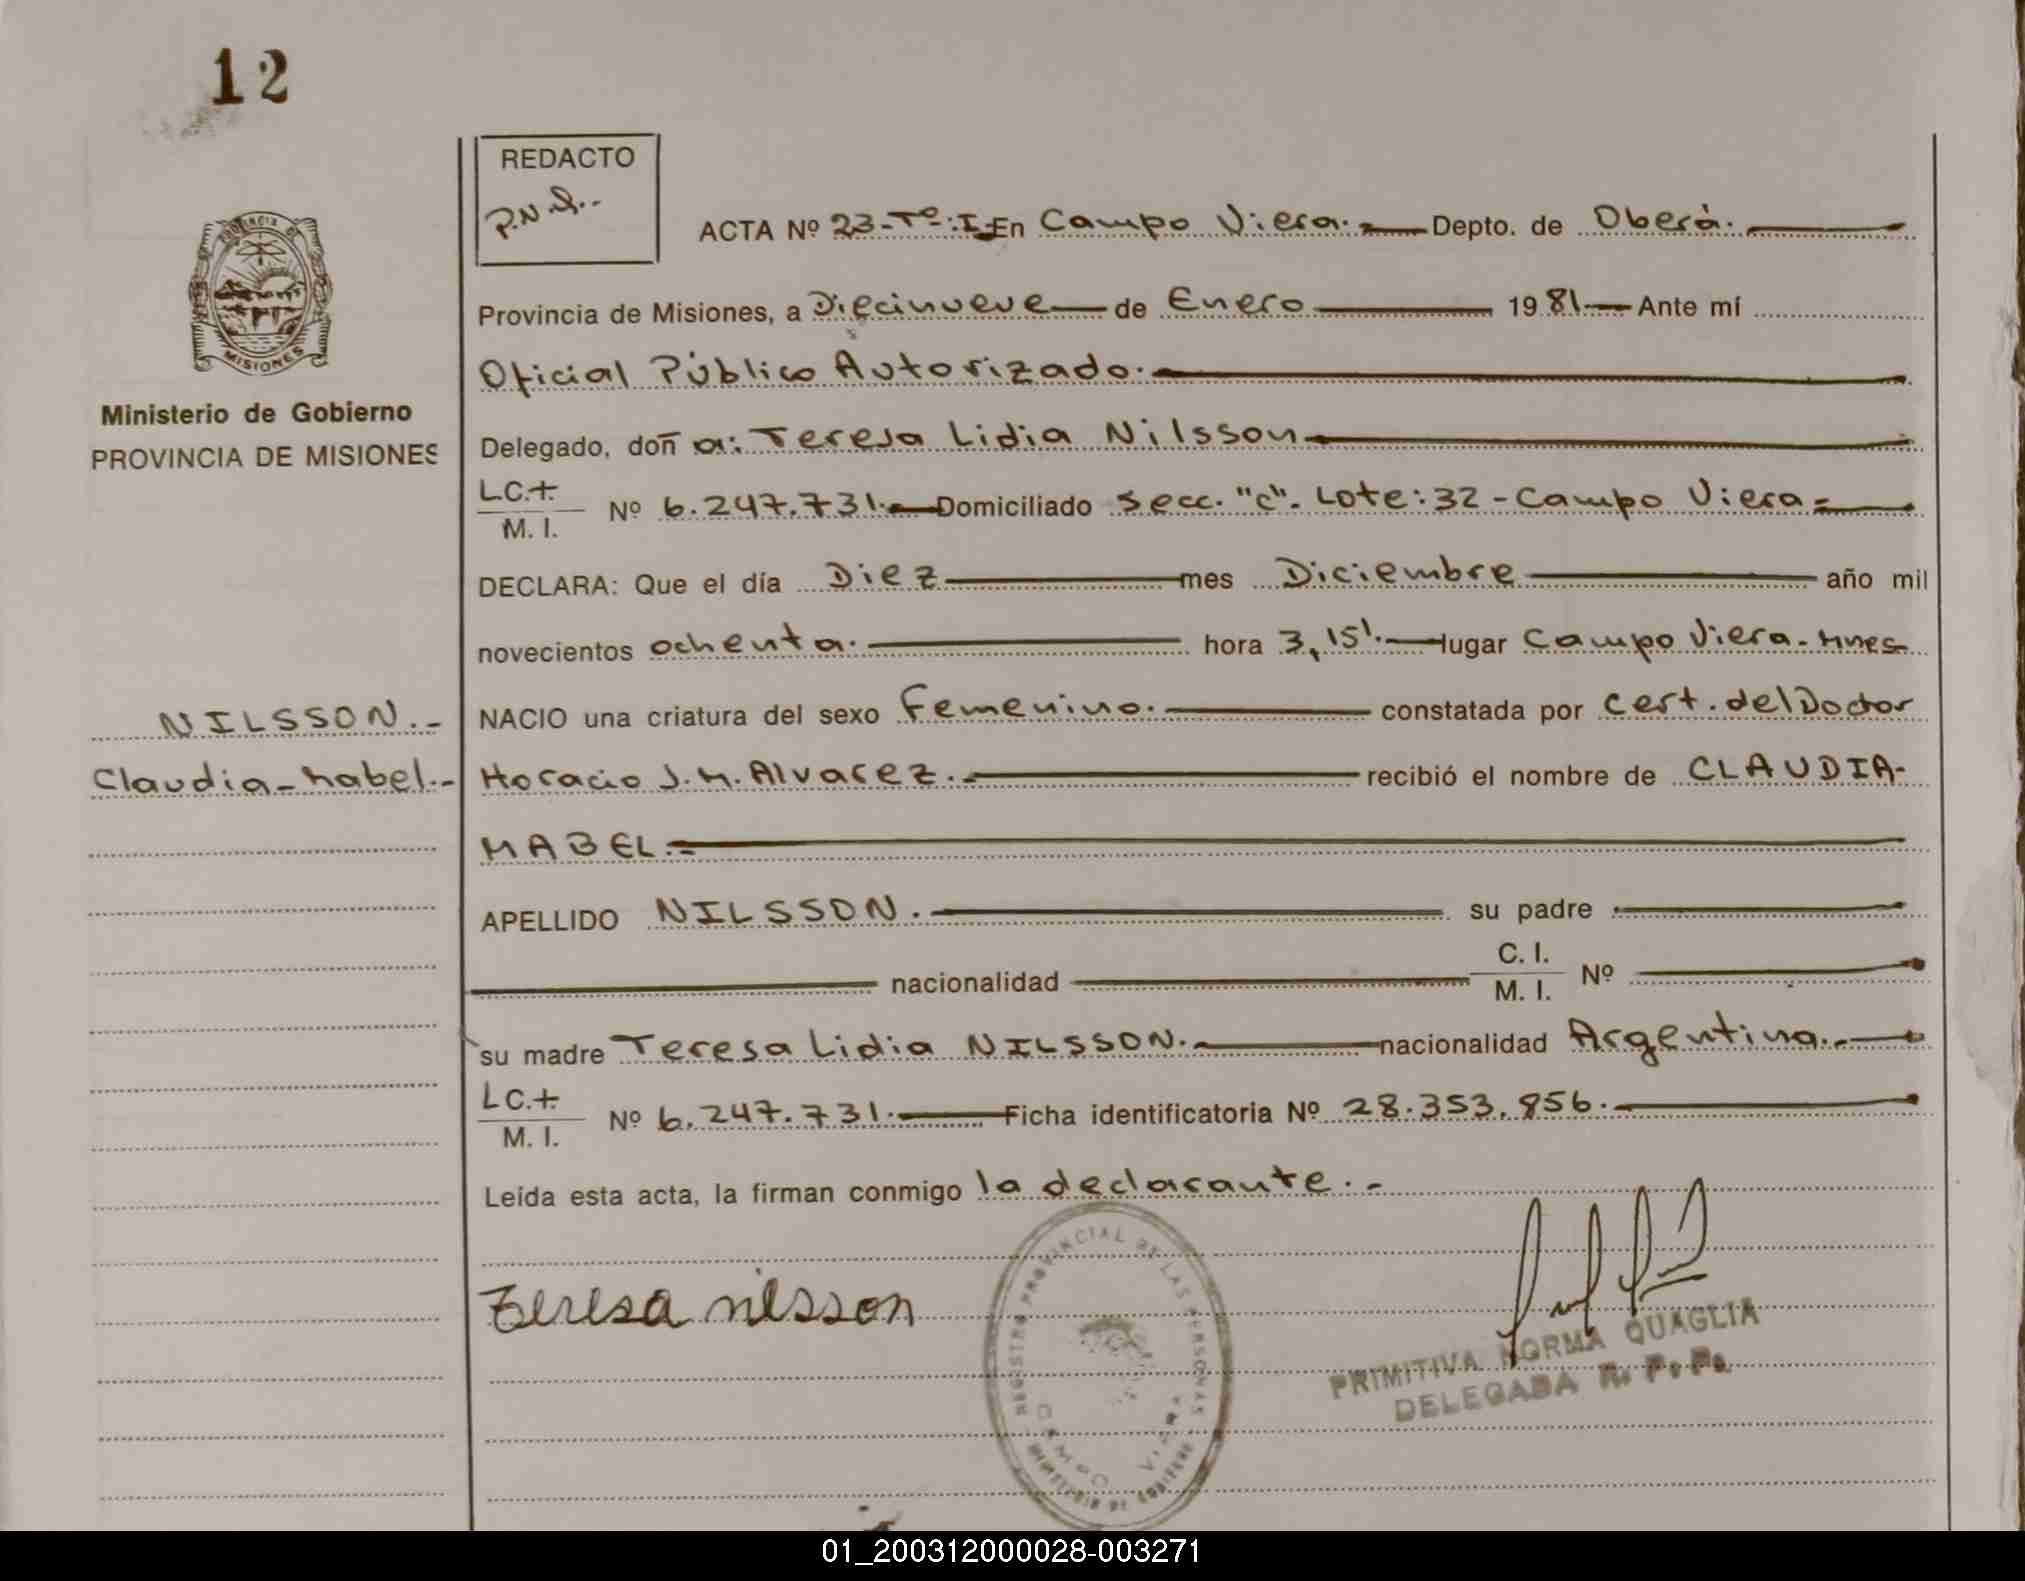 12
REDACTO
P.N.Q..
ACTA Nº 23-Tº:I-En Campo Viera.- Depto. de Oberá.
Provincia de Misiones, a Diecinueve de Enero 1981- Ante mí
Oficial Público Autorizado.
Delegado, doña: Teresa Lidia Nilsson
L.C.+. M. I. Nº 6.247.731.- Domiciliado secc. "C". Lote: 32 - Campo Viera=
DECLARA: Que el día Diez mes Diciembre año mil
novecientos ochenta. hora 3,15'.- lugar Campo Viera-Mnes-
NACIO una criatura del sexo Femenino. constatada por Cert. del Doctor
Horacio J.M. Alvarez.- recibió el nombre de CLAUDIA-
MABEL.=
APELLIDO NILSSON. su padre
nacionalidad C. I. M. I. Nº
su madre Teresa Lidia NILSSON.- nacionalidad Argentina.-
L.C.+. M. I. Nº 6.247.731.- Ficha identificatoria Nº 28.353.856.-
Leída esta acta, la firman conmigo la declarante.-
Teresa nilsson
PROVINCIA DE MISIONES
Ministerio de Gobierno
PROVINCIA DE MISIONES
NILSSON.-
Claudia-Mabel.-
REGISTRO PROVINCIAL DE LAS PERSONAS
MINISTERIO DE GOBIERNO
CAMPO VIERA
PRIMITIVA NORMA QUAGLIA
DELEGADA R. P. P.
01_200312000028-003271